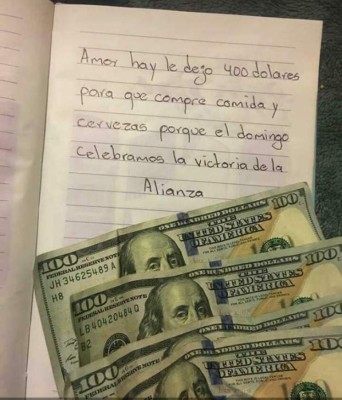 Amor hay le dejo 400 dolares
para que compre comida y
cervezas porque el domingo
celebramos la victoria de la
Alianza
100
ONE HUNDRED DOLLARS
FEDERAL RESERVE NOTE
THE UNITED STATES OF AMERICA
JH 34625489 A
H8
100
ONE HUNDRED DOLLARS
100
FEDERAL RESERVE NOTE
THE UNITED STATES OF AMERICA
LB 40420484 Q
B2
ONE HUNDRED DOLLARS
100
FEDERAL RESERVE NOTE
UNITED STATES
OF AMERICA
100
100